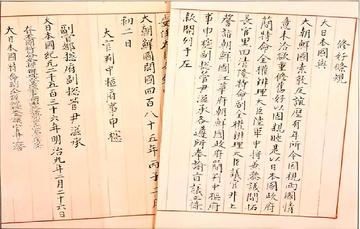 修好條規
大日本國與
大朝鮮國素敦友誼歷有年所今因視兩國情
意未洽欲重修舊好以固親睦是以日本國政府
簡特命全權辨理大臣陸軍中將兼參議開拓
長官黑田清隆特命副全權辨理大臣議官井上
馨詣朝鮮國江華府朝鮮國政府簡判中樞府
事申櫶副摠管尹滋承各遵所奉諭旨議立條
款開列于左
大朝鮮國開國四百八十五年丙子二
初二日
大官判中樞府事申櫶
副官都摠府副摠管尹滋承
大日本國紀元二千五百三十六年明治九年二月二十六日
大日本國特命